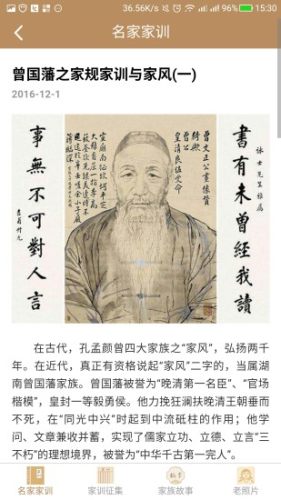 36.56K/s 4G 96% 15:30
名家家训
曾国藩之家规家训与家风(一)
2016-12-1
書有未曾經我讀
事無不可對人言
曾文正公畫像贊
在古代，孔孟颜曾四大家族之“家风”，弘扬两千
年。在近代，真正有资格说起“家风”二字的，当属湖
南曾国藩家族。曾国藩被誉为“晚清第一名臣”、“官场
楷模”，皇封一等毅勇侯。他力挽狂澜扶晚清王朝垂而
不死，在“同光中兴”时起到中流砥柱的作用；他学
问、文章兼收并蓄，实现了儒家立功、立德、立言“三
不朽”的理想境界，被誉为“中华千古第一完人”。
名家家训
家训征集
家族故事
老照片